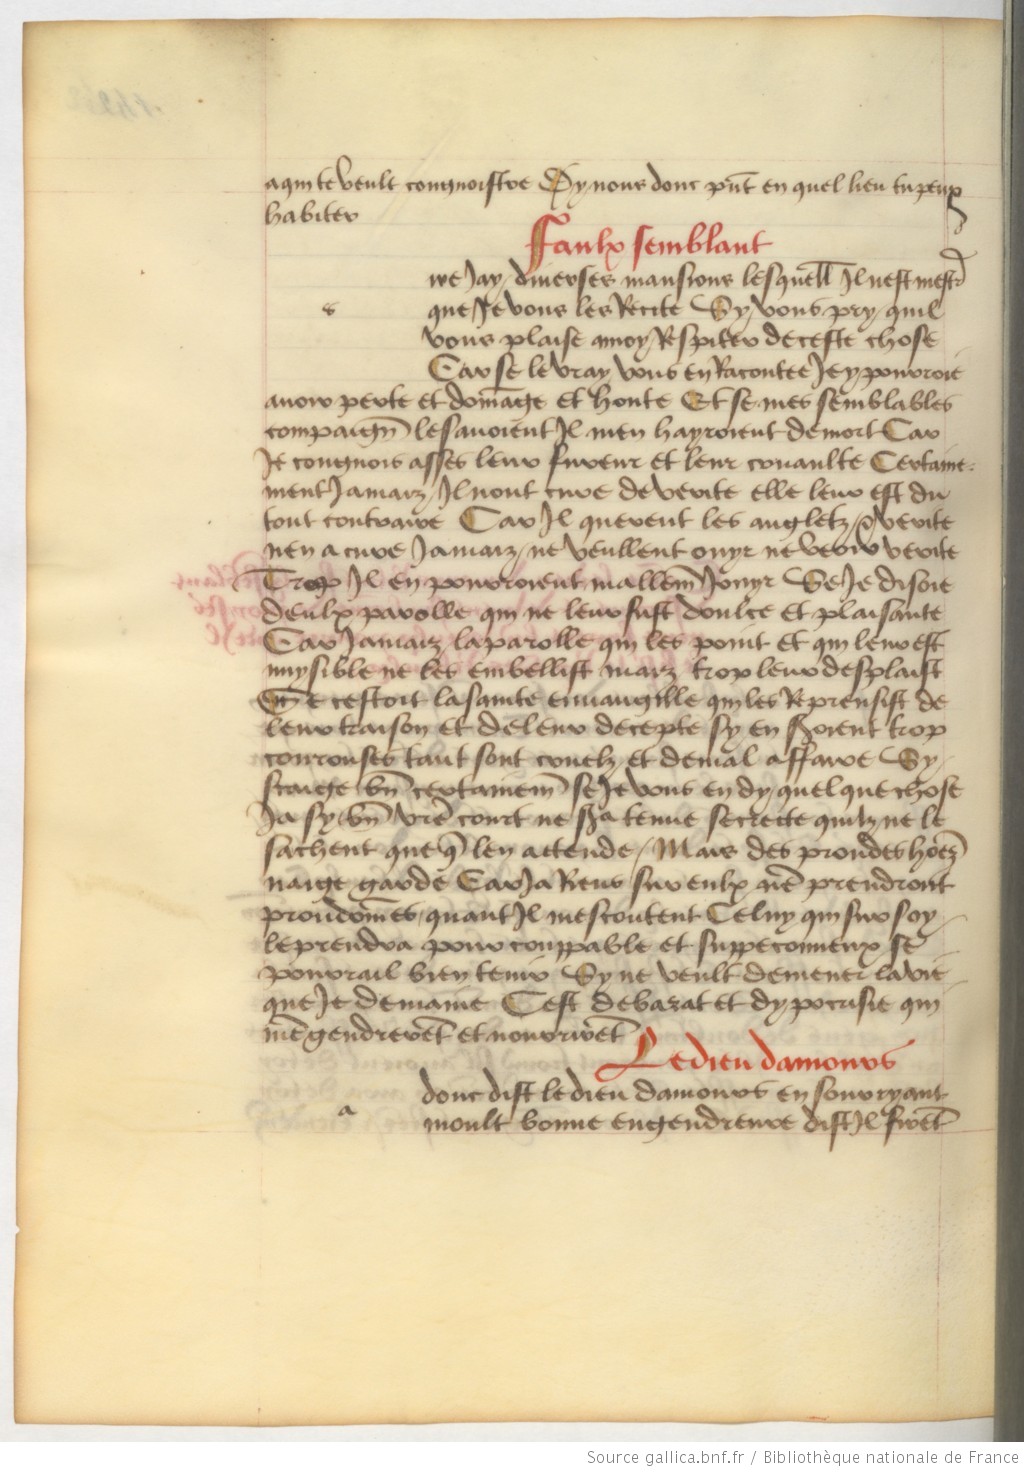 a qui te veult congnoistre Dy nous donc pñt en quel lieu tu peux
habiter
Faulx semblant
ire Jay diverses mansions lesquell Il nest mest
s que Je vous les Recite Sy vous pry quil
vous plaise a moy Respiter de ceste chose
Car se le vray vous en Racontee Je y pourroie
avoir perte et domage et honte Et se mes semblables
compaign̄ le savoient Il men hayroient de mort Car
Je congnois asses leur fureur et leur cruaulte Certaine-
ment Jamaiz Il nont cure de verite elle leur est du
tout contraire Car Il querent les angletz verite
nen a cure Jamaiz ne veullent ouyr ne veoir verite
Trop Il en pourroient mallem̄ Jouyr Se Je disoie
deulx parolle qui ne leur fust doulce et plaisante
Car Jamaiz la parolle qui les point et qui leur est
nuysible ne les embellist maiz trop leur desplaist
Et se cestoit la sainte euuangille qui les Reprensist de
leur traison et de leur decepte sy en s̄oient trop
courouses tant sont cruelz et de mal affaire Sy
scaige bn̄ certainem̄ se Je vous en dy quelque chose
Ja sy bn̄ vr̄e court ne s̄a tenue secrecte quilz ne le
sachent que q̄ len actende Mais des proudes hōez
naige garde Car Ja Riens sur eulx nē prendront
proudōmes quant Il mescoutent Celuy qui sur soy
le prendra pour couppable et suppeconneux se
pourrail bien tenir Sy ne veult demener la vie
que Je demaine Cest de barat et dypocrisie qui
mē gendrerēt et nourrirēt
Le dieu damours
donc dist le dieu damours en sourryant
a moult bonne engendreure dist Il firēt
Source gallica.bnf.fr / Bibliothèque nationale de France